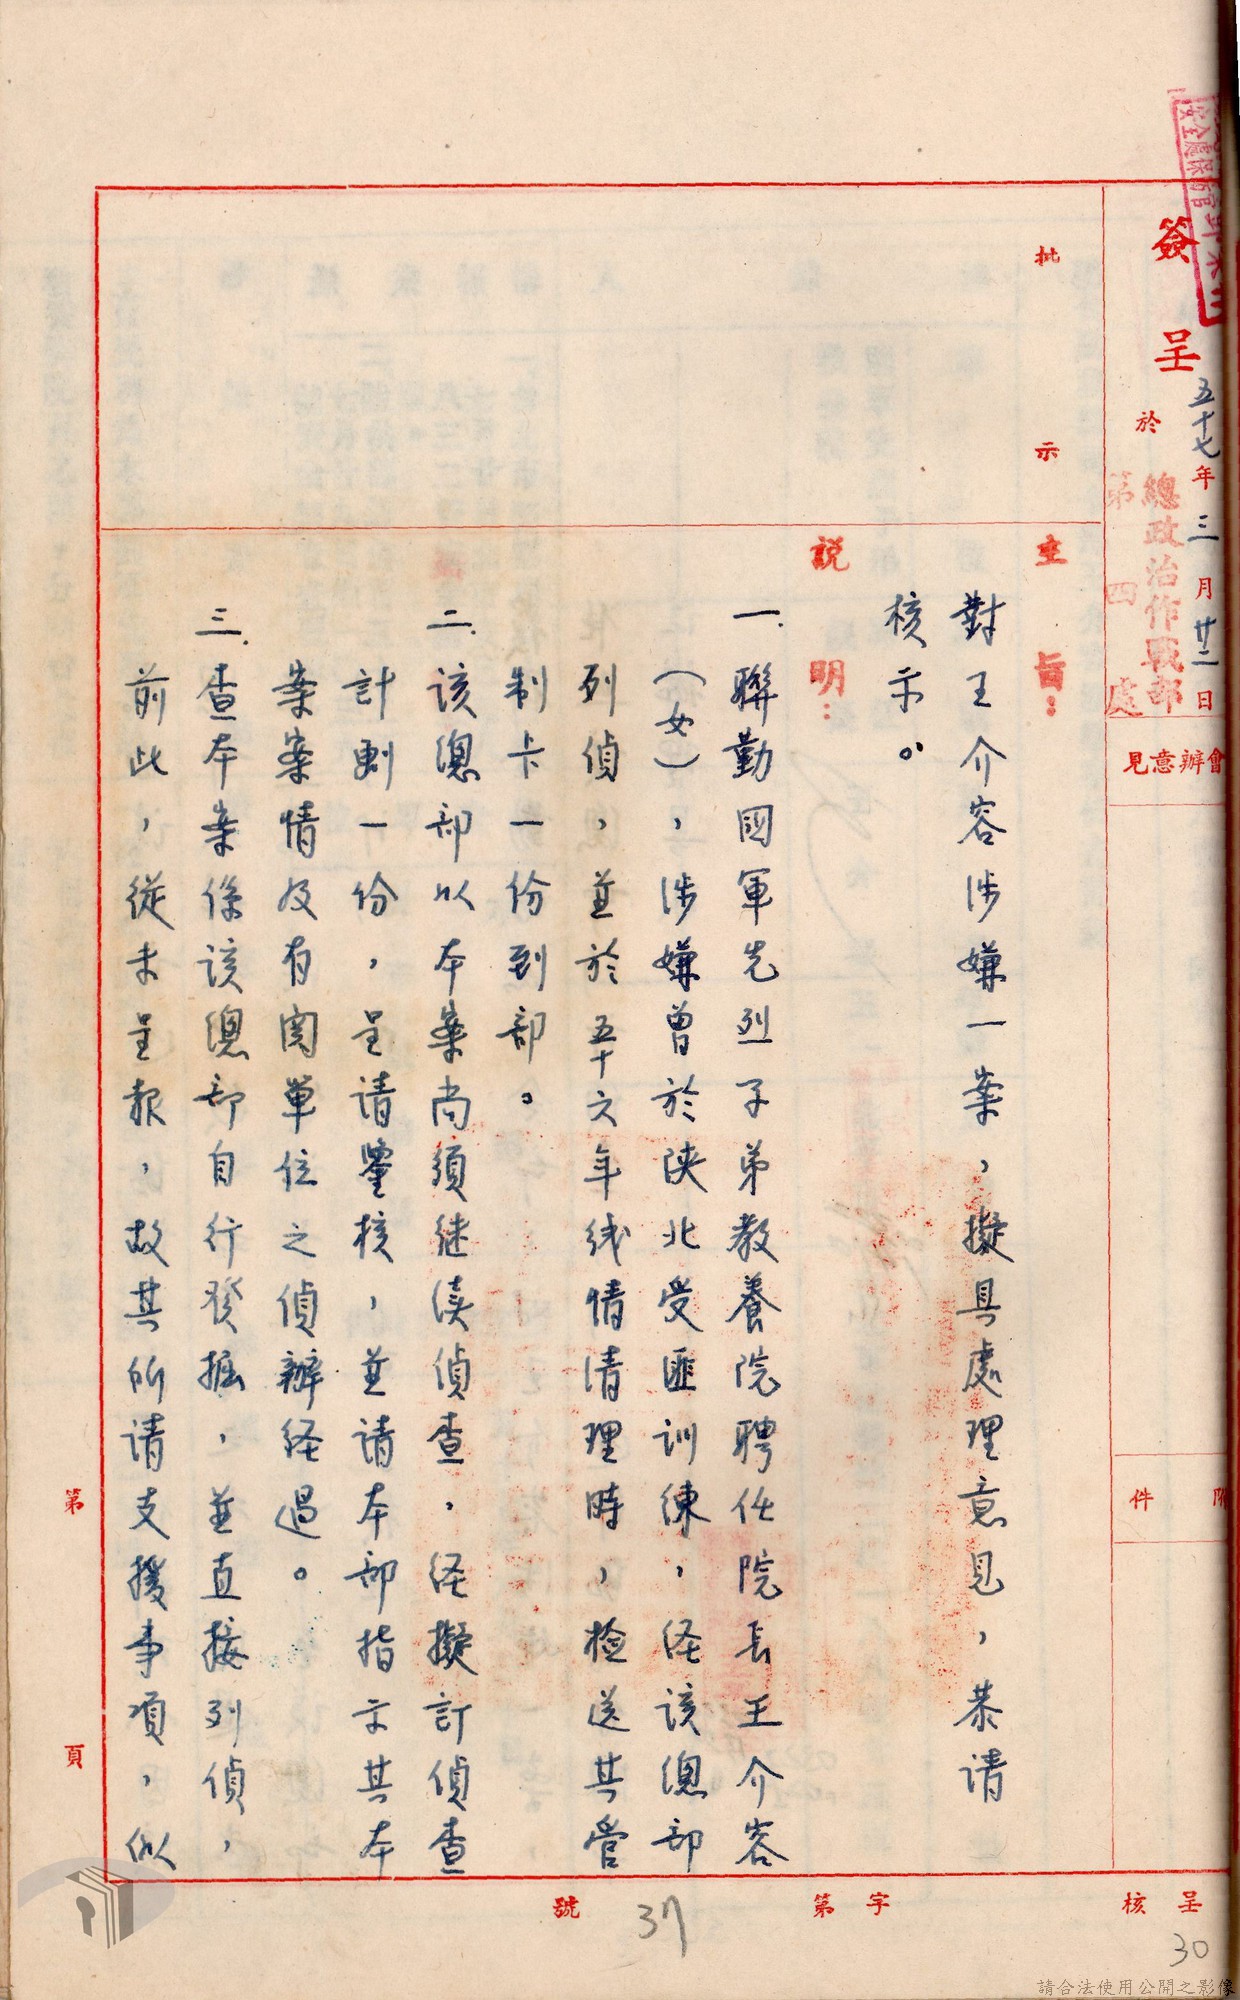 安全處保防官
簽呈
五十七年三月廿二日
於
總政治作戰部
第四處
會辦意見
附件
批示
主旨：
對王介容涉嫌一案，擬具處理意見，恭请
核示。
說明：
一.聯勤國軍先烈子弟教養院聘任院長王介容
（女），涉嫌曾於陕北受匪訓練，经该總部
列偵，並於五十六年线情清理時，检送其管
制卡一份到部。
二.该總部以本案尚須继续偵查，经擬訂偵查
計劃一份，呈请鑒核，並请本部指示其本
案案情及有関單位之偵辦经過。
三.查本案係该總部自行發掘，並直接列偵，
前此，從未呈報，故其所请支援事項，似
第
頁
呈核
字第
號
37
30
請合法使用公開之影像